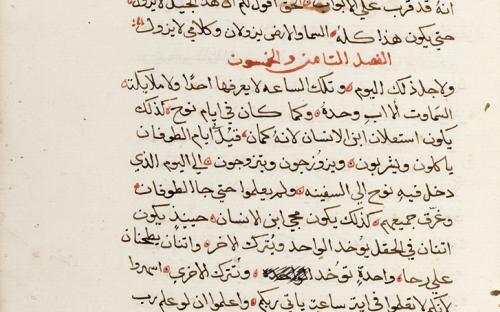 انه قد قرب علي الابواب الحق اقول لكم ان هذا الجيل لا يزول
حتي يكون هذا كله السما والارض يزولان وكلامي لا يزول
الفصل الثامن والخمسون
ولاجل ذلك اليوم وتلك الساعه لا يعرفها احدًا ولا ملايكة
السماوت الا اب وحده وكما كان في ايام نوح كذلك
يكون استعلان ابن الانسان لانه كمان قبل ايام الطوفان
ياكلون ويشربون ويزوجون ويتزوجون الي اليوم الذي
دخل فيه نوح الي السفينه ولم يعلموا حتي جا الطوفان
وغرق جميعهم كذلك يكون مجي ابن الانسان حينيذ يكون
اتنان في الحقل يوخد الواحد ويترك الاخر واتنان يطحنان
علي رحا واحدة توخد وتترك الاخري اسهروا
لانكم لا تعلموا في اية ساعة ياتي ربكم واعلموا ان لو علم رب